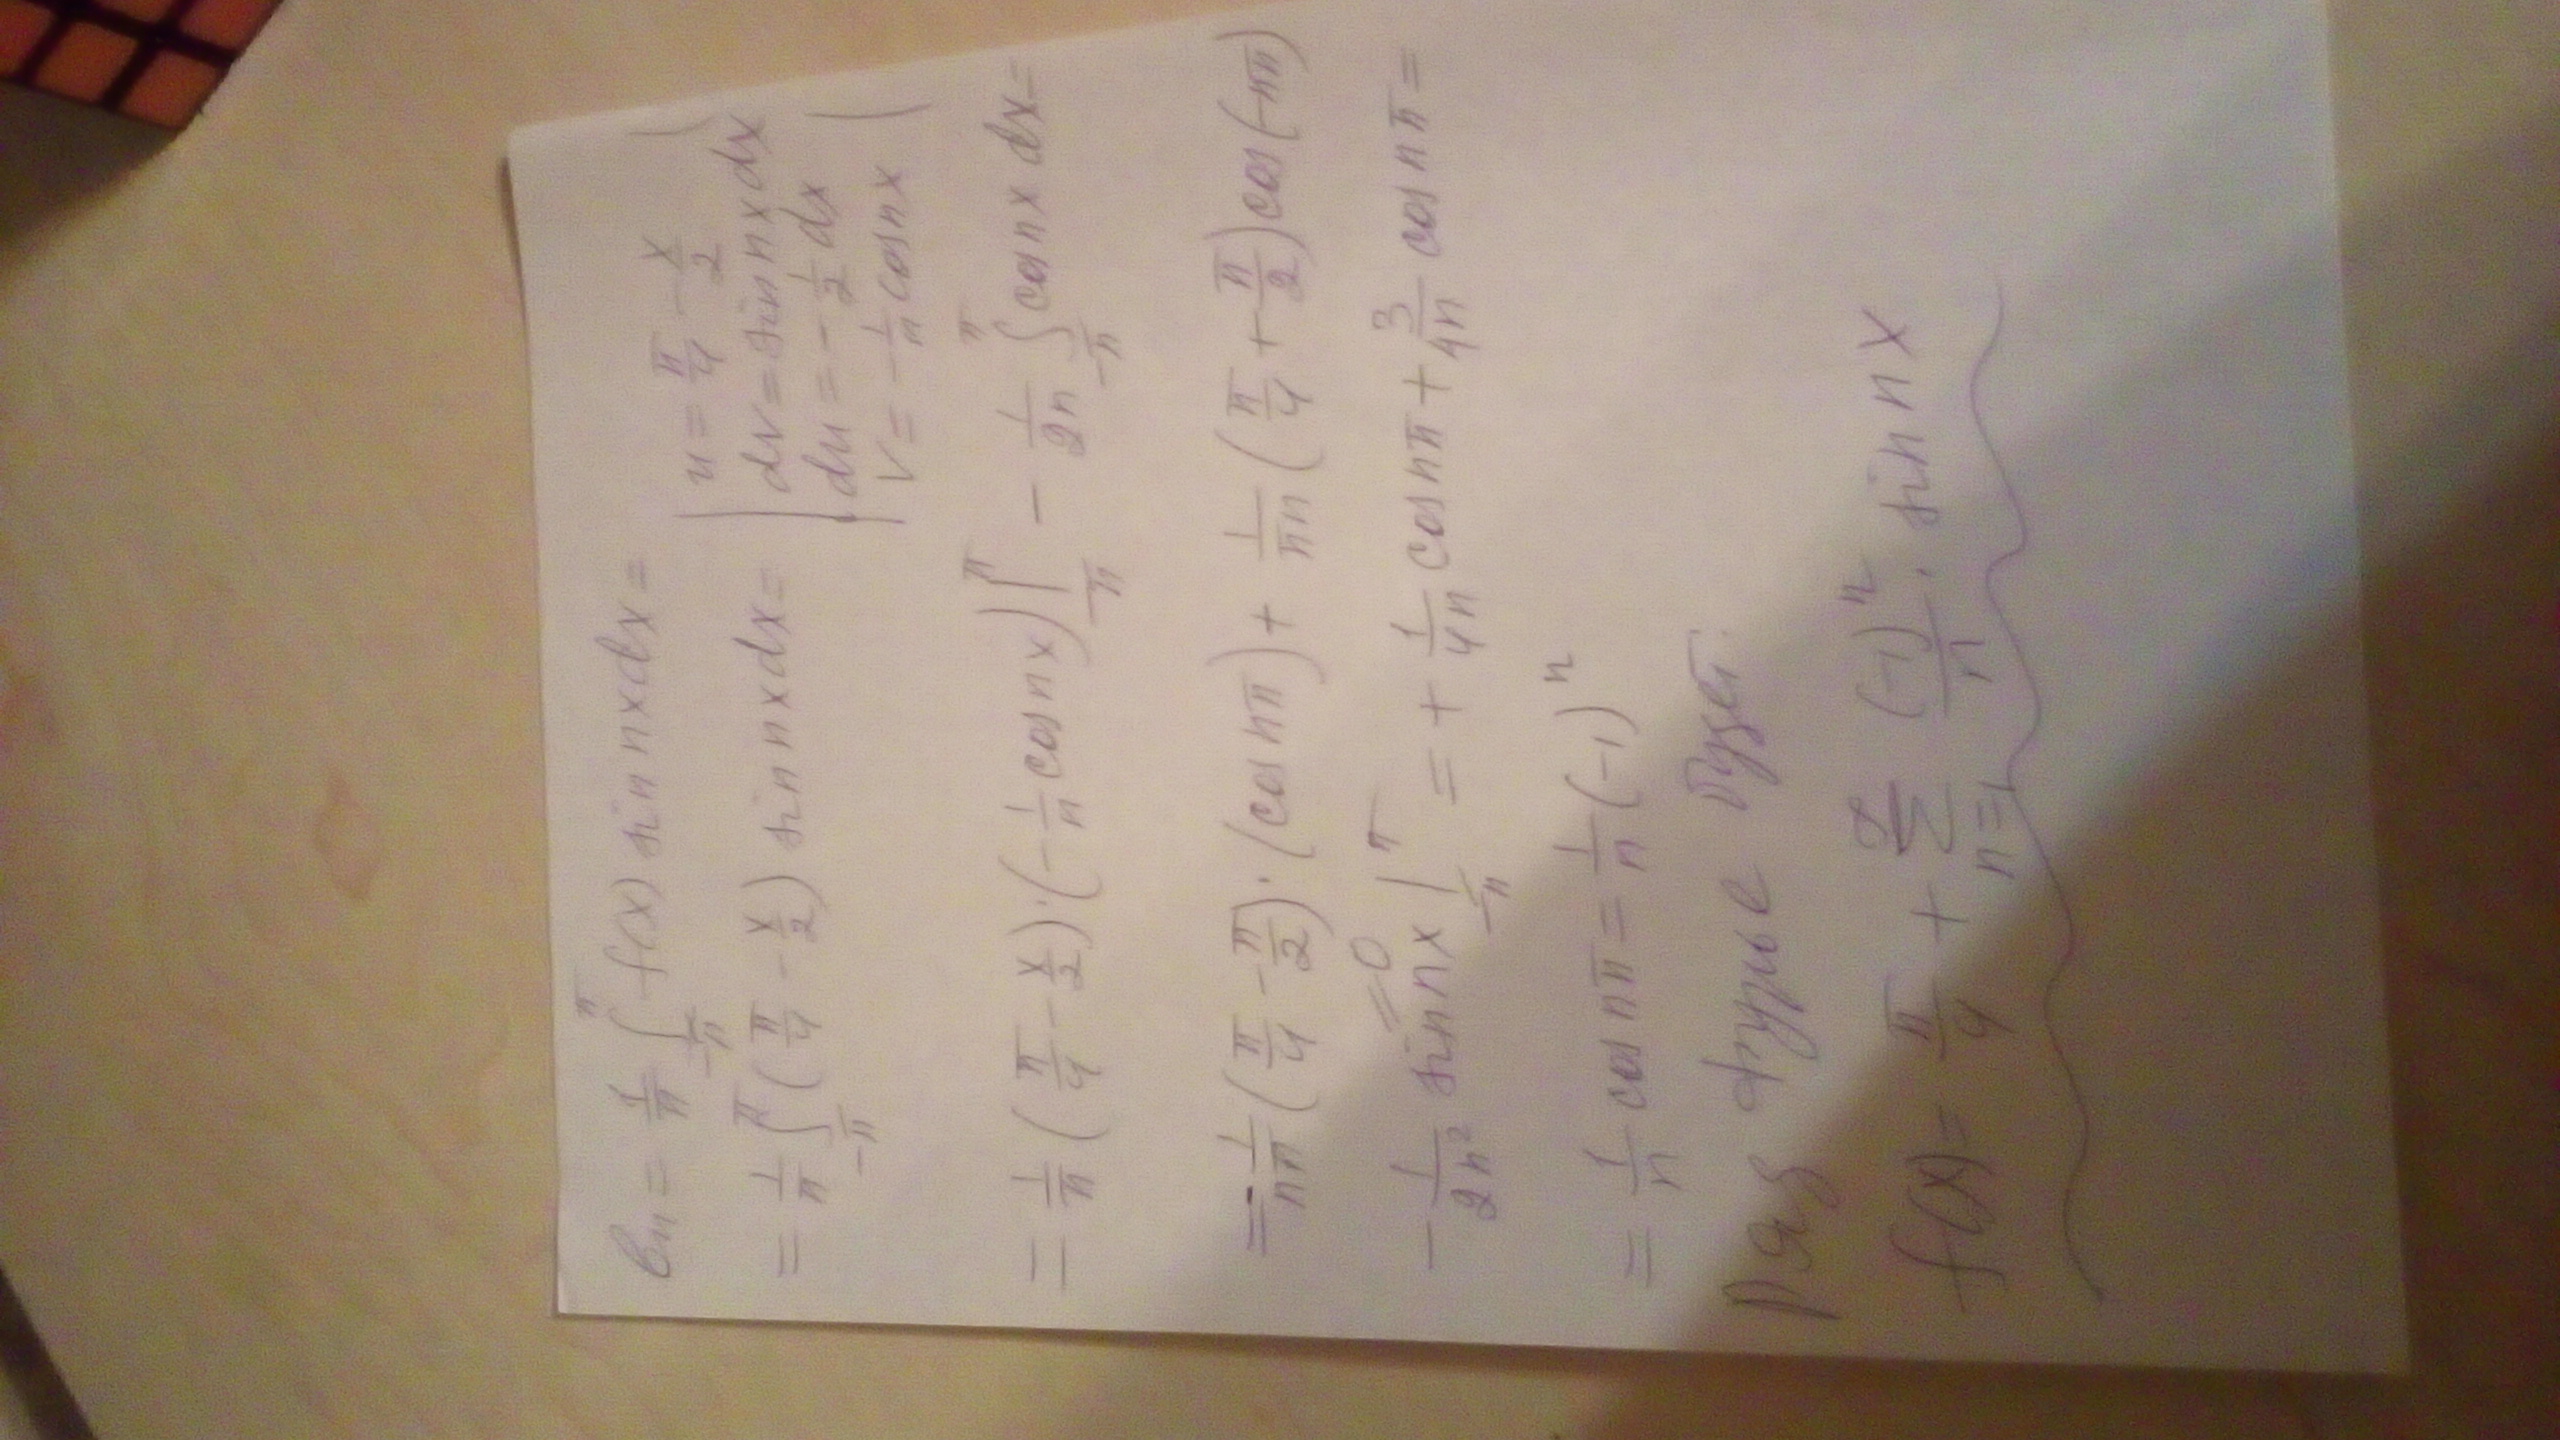 bn = 1/π ∫_{-π}^{π} f(x) sin nx dx =
= 1/π ∫_{-π}^{π} (π/4 - x/2) sin nx dx =
| u = π/4 - x/2 |
| dv = sin nx dx
| du = -1/2 dx |
| v = -1/n cos nx |
= 1/π (π/4 - x/2)·(-1/n cos nx) |_{-π}^{π} - 1/2n ∫_{-π}^{π} cos nx dx =
= -1/nπ (π/4 - π/2)·(cos nπ) + 1/πn (π/4 + π/2) cos(-nπ)
- 1/2n² sin nx |_{-π}^{π} = + 1/4n cos nπ + 3/4n cos nπ =
=0
= 1/n cos nπ = 1/n (-1)^n
Ряд фурье будет:
f(x) = π/4 + ∑_{n=1}^{∞} (-1)^n/n · sin nx